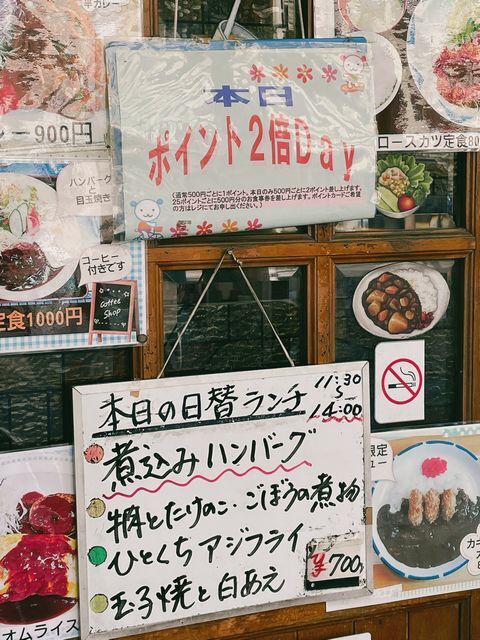 ー900円
本日
ポイント2倍Day
(通常500円ごとに1ポイント。本日のみ500円ごとに2ポイント差し上げます。
25ポイントごとに500円分のお食事券を差し上げます。ポイントカードご希望
の方はレジにてお申し出ください。)
ロースカツ定食80
ハンバーグ
と
目玉焼き
コーヒー
付きです
Coffee
Shop
定食1000円
本日の日替ランチ
11:30
~
14:00
煮込みハンバーグ
豚とたけのこ・ごぼうの煮物
ひとくちアジフライ
玉子焼と白あえ
¥700
オムライス
限定